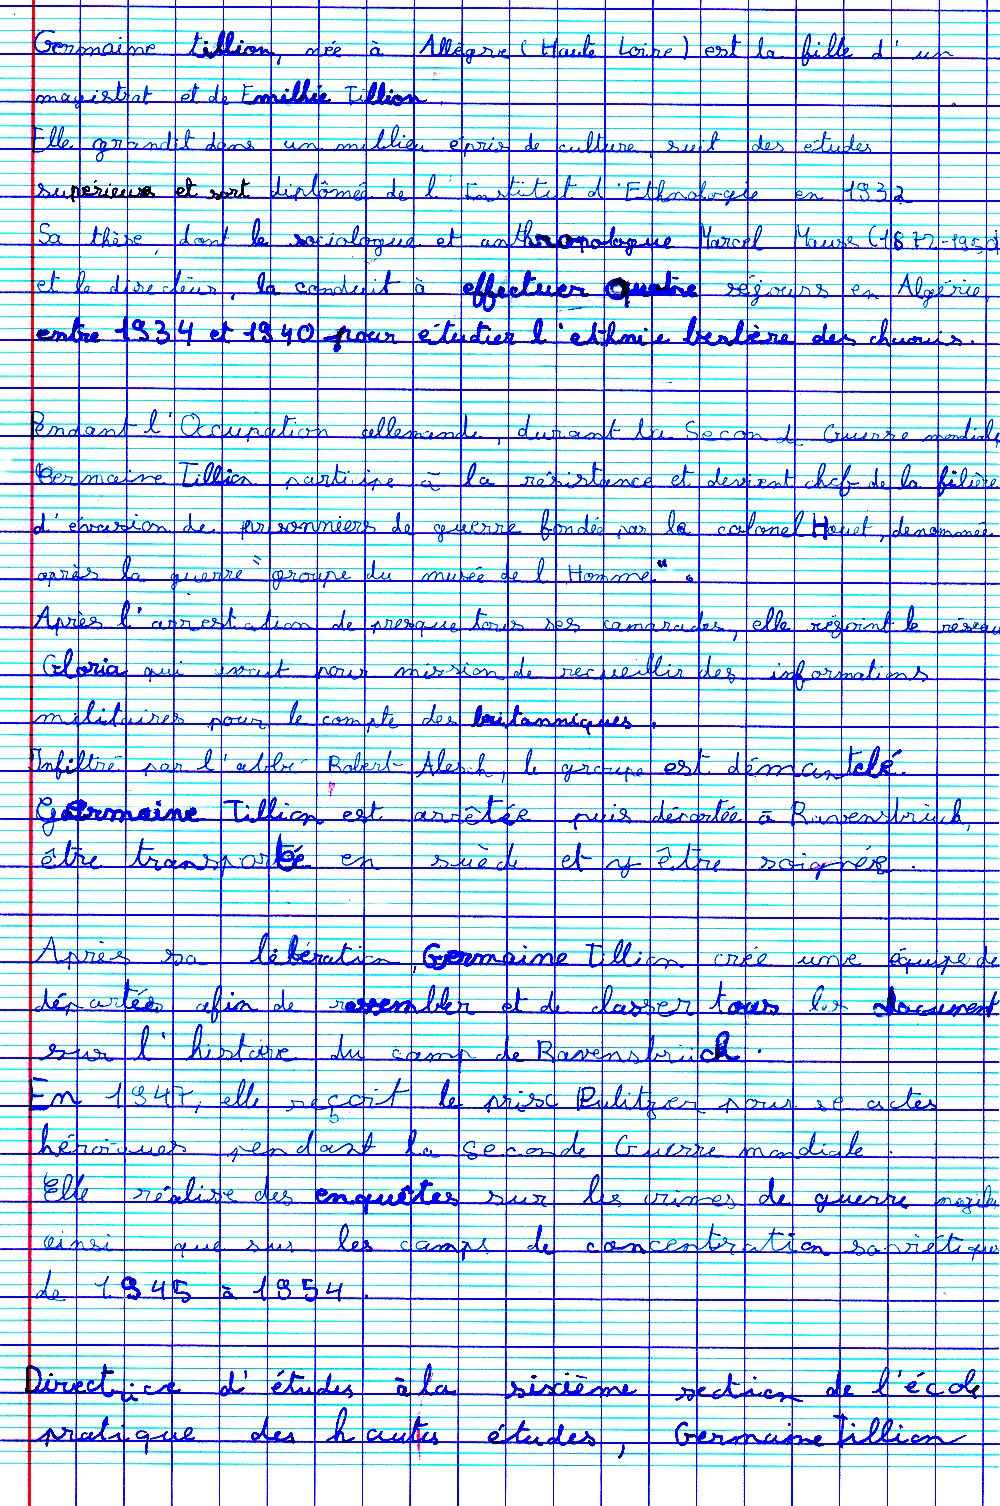 Germaine Tillion, née à Allègre (Haute Loire) est la fille d'un
magistrat et de Emillie Tillion.
Elle grandit dans un millieu épris de culture, suit des etudes
supérieures et sort diplômée de l'Institut d'Ethnologie en 1932
Sa thèse, dont le sociologue et anthropologue Marcel Mauss (1872-1950)
et le directeur, la conduit à effectuer quatre séjours en Algérie,
entre 1934 et 1940 pour étudier l'ethnie berbère des chaouis.
Pendant l'Occupation allemande, durant la Second Guerre mondiale
Germaine Tillion participe à la résistance et devient chef de la filière
d'évasion de prisonniers de guerre fondée par le colonel Hauet, denommée
après la guerre "groupe du musée de l'Homme".
Après l'arrestation de presque tous ses camarades, elle rejoint le réseau
Gloria qui avait pour mission de recueillir des informations
militaires pour le compte des britanniques.
Infiltré par l'abbé Robert Alesch, le groupe est démantelé.
Germaine Tillion est arrêtée puis déportée à Ravensbrück,
être transportée en suède et y être soignée.
Après sa libération, Germaine Tillion crée une équipe de
déportées afin de rassembler et de classer tous les document
sur l'histoire du camp de Ravensbrück.
En 1947, elle reçoit le prix Pulitzer pour se actes
héroïques pendant la seconde Guerre mondiale.
Elle réalise des enquêtes sur les crimes de guerre nazis
ainsi que sur les camps de concentration soviétique
de 1945 à 1954.
Directrice d'études à la sixième section de l'école
pratique des hautes études, Germaine Tillion